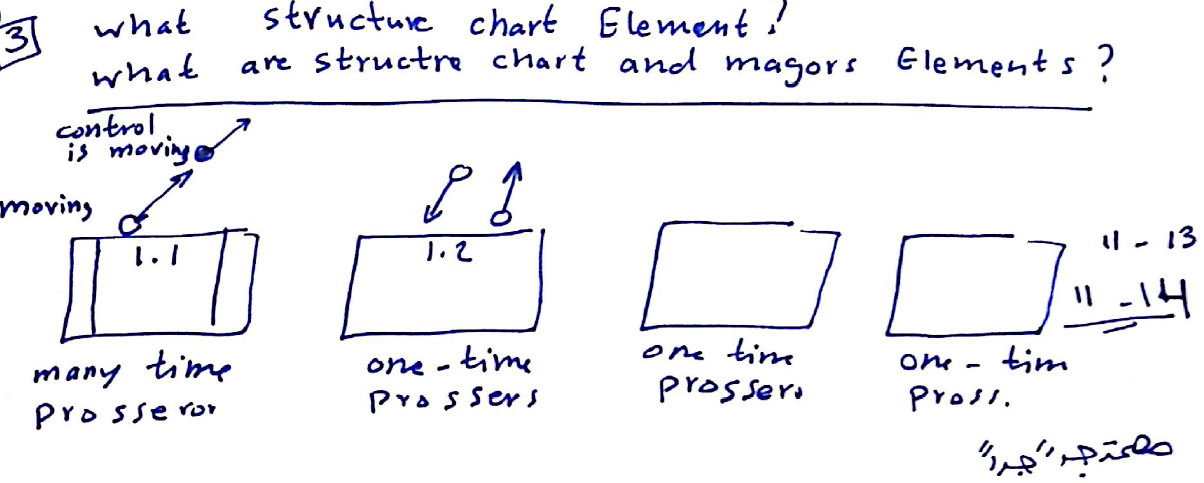 3] what structure chart Element!
what are structre chart and magors Elements ?
control
is moving
moving
1.1
1.2
11 - 13
11 - 14
many time
prosseror
one - time
prossers
one time
prossers
one - tim
pross.
"جدا"